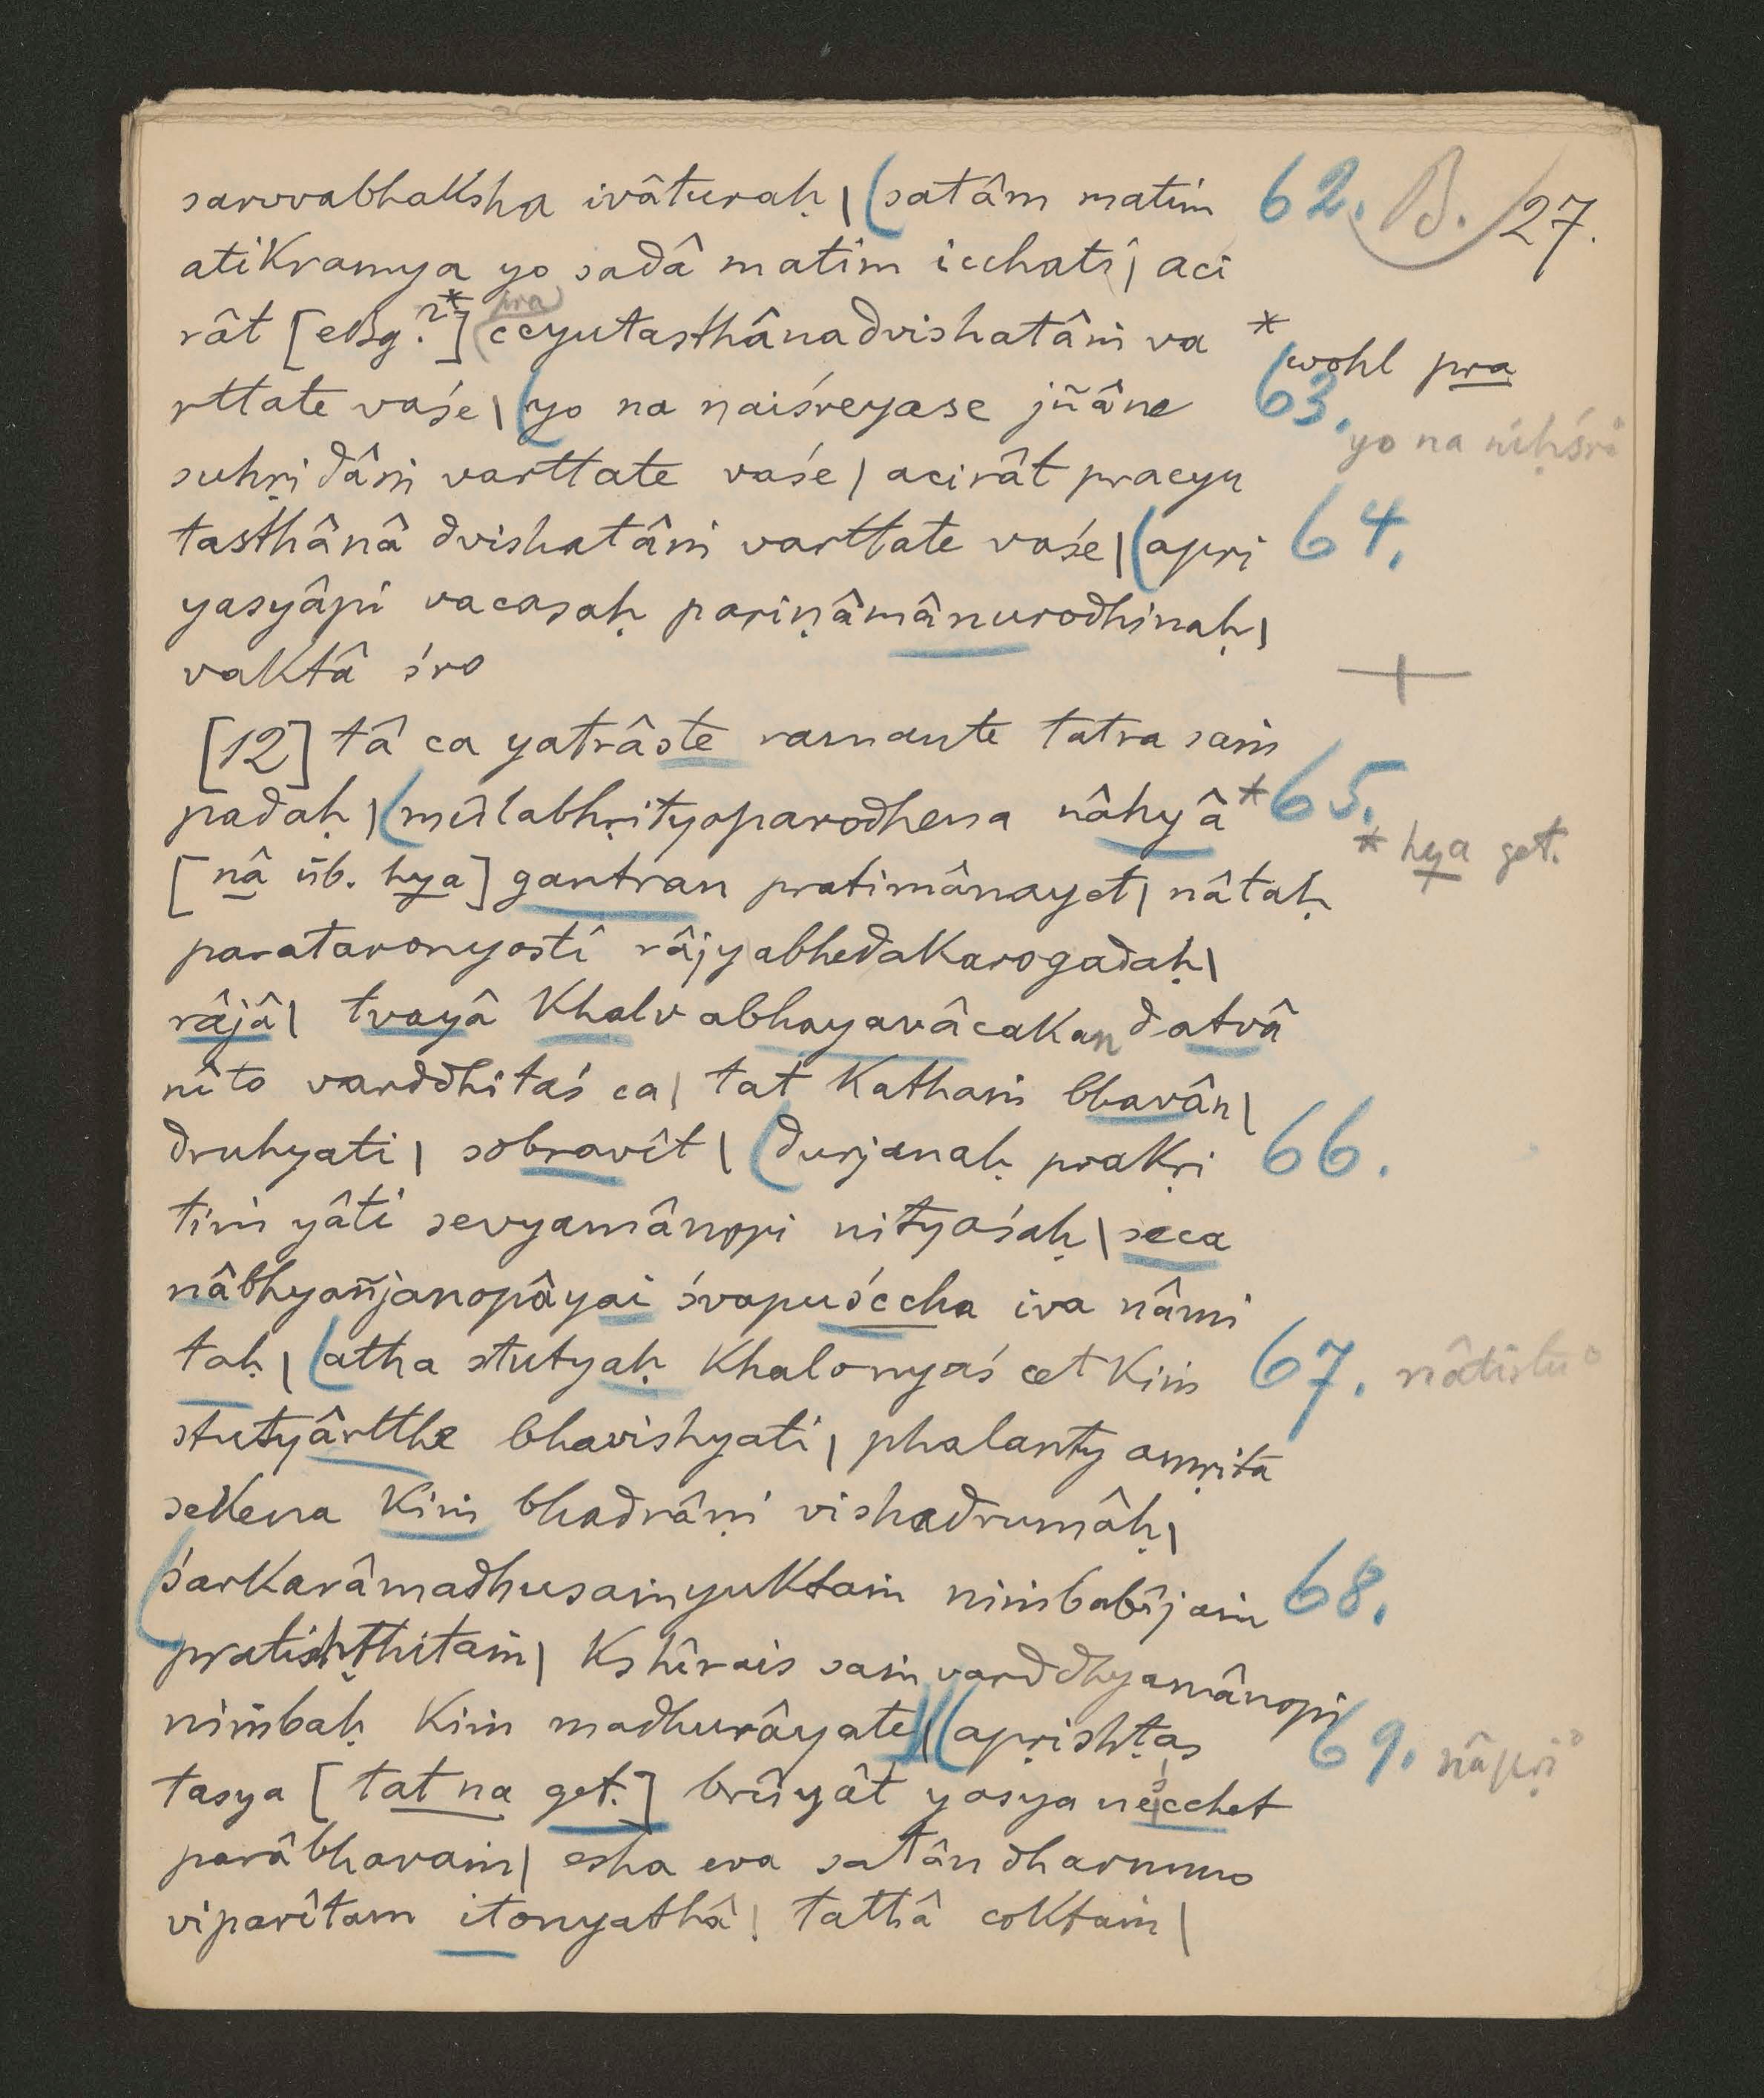 sarvvabhaksha ivâturaḥ | (satâm matim 62. B. 27.
atikramya yo sadâ matim icchati | aci
rât [ ?*] (pra) ccyutasthânadvishatâṁ va * wohl pra
rttate vaśe | (yo na naiśreyase jñâne 63. yo na niḥśre°
suhṛidâṁ varttate vaśe | acirât pracyu
tasthânâ dvishatâṁ varttate vaśe | (apri 64.
yasyâpi vacasaḥ pariṇâmânurodhinaḥ |
vaktâ śro +
[12] tâ ca yatrâste ramante tatra saṁ
padaḥ | (mûlabhṛityoparodhena nâhyâ* 65.
[nâ üb. hya] gantran pratimânayet | nâtaḥ * hya get.
parataronyosti râjyabhedakarogadaḥ |
râjâ | tvayâ khalv abhayavâcakan datvâ
nîto varddhitaś ca | tat kathaṁ bhavân |
druhyati | sobravît | (durjanaḥ prakṛi 66.
tiṁ yâti sevyamânopi nityaśaḥ | seca
nâbhyañjanopâyai śvapuśccha iva nâmi
taḥ | (atha stutyaḥ khalonyaś cet kiṁ 67. nâtistu°
stutyârtthe bhavishyati | phalanty amṛita
sekena kiṁ bhadrâṇi vishadrumâḥ |
(śarkarâmadhusaṁyuktaṁ nimbabîjaṁ 68.
pratishṭhitaṁ | kshîrais saṁvarddhyamânopi
nimbaḥ kiṁ madhurâyate | (apṛishṭas 69. nâpṛi°
tasya [tat na get.] brûyât yasya neśccchet
parâbhavaṁ | esha eva satân dharmmo
viparîtam itonyathâ | tathâ coktaṁ |